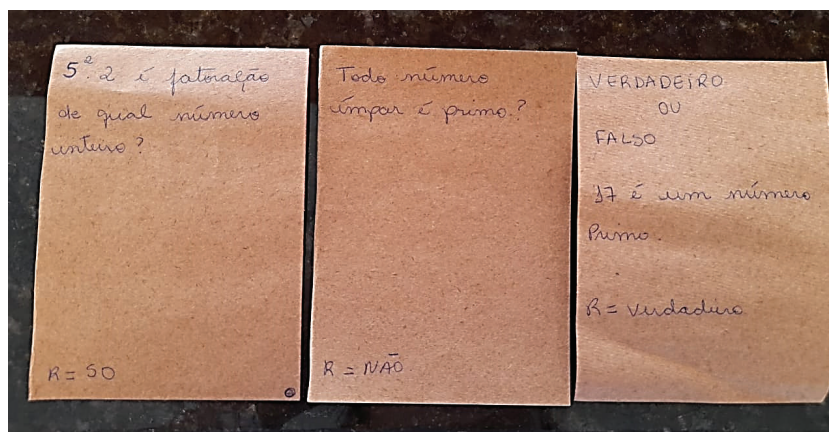 5². 2 é fatoração
de qual número
inteiro?
R = 50
Todo número
ímpar é primo?
R = NÃO
VERDADEIRO
OU
FALSO
17 é um número
Primo.
R = Verdadeiro